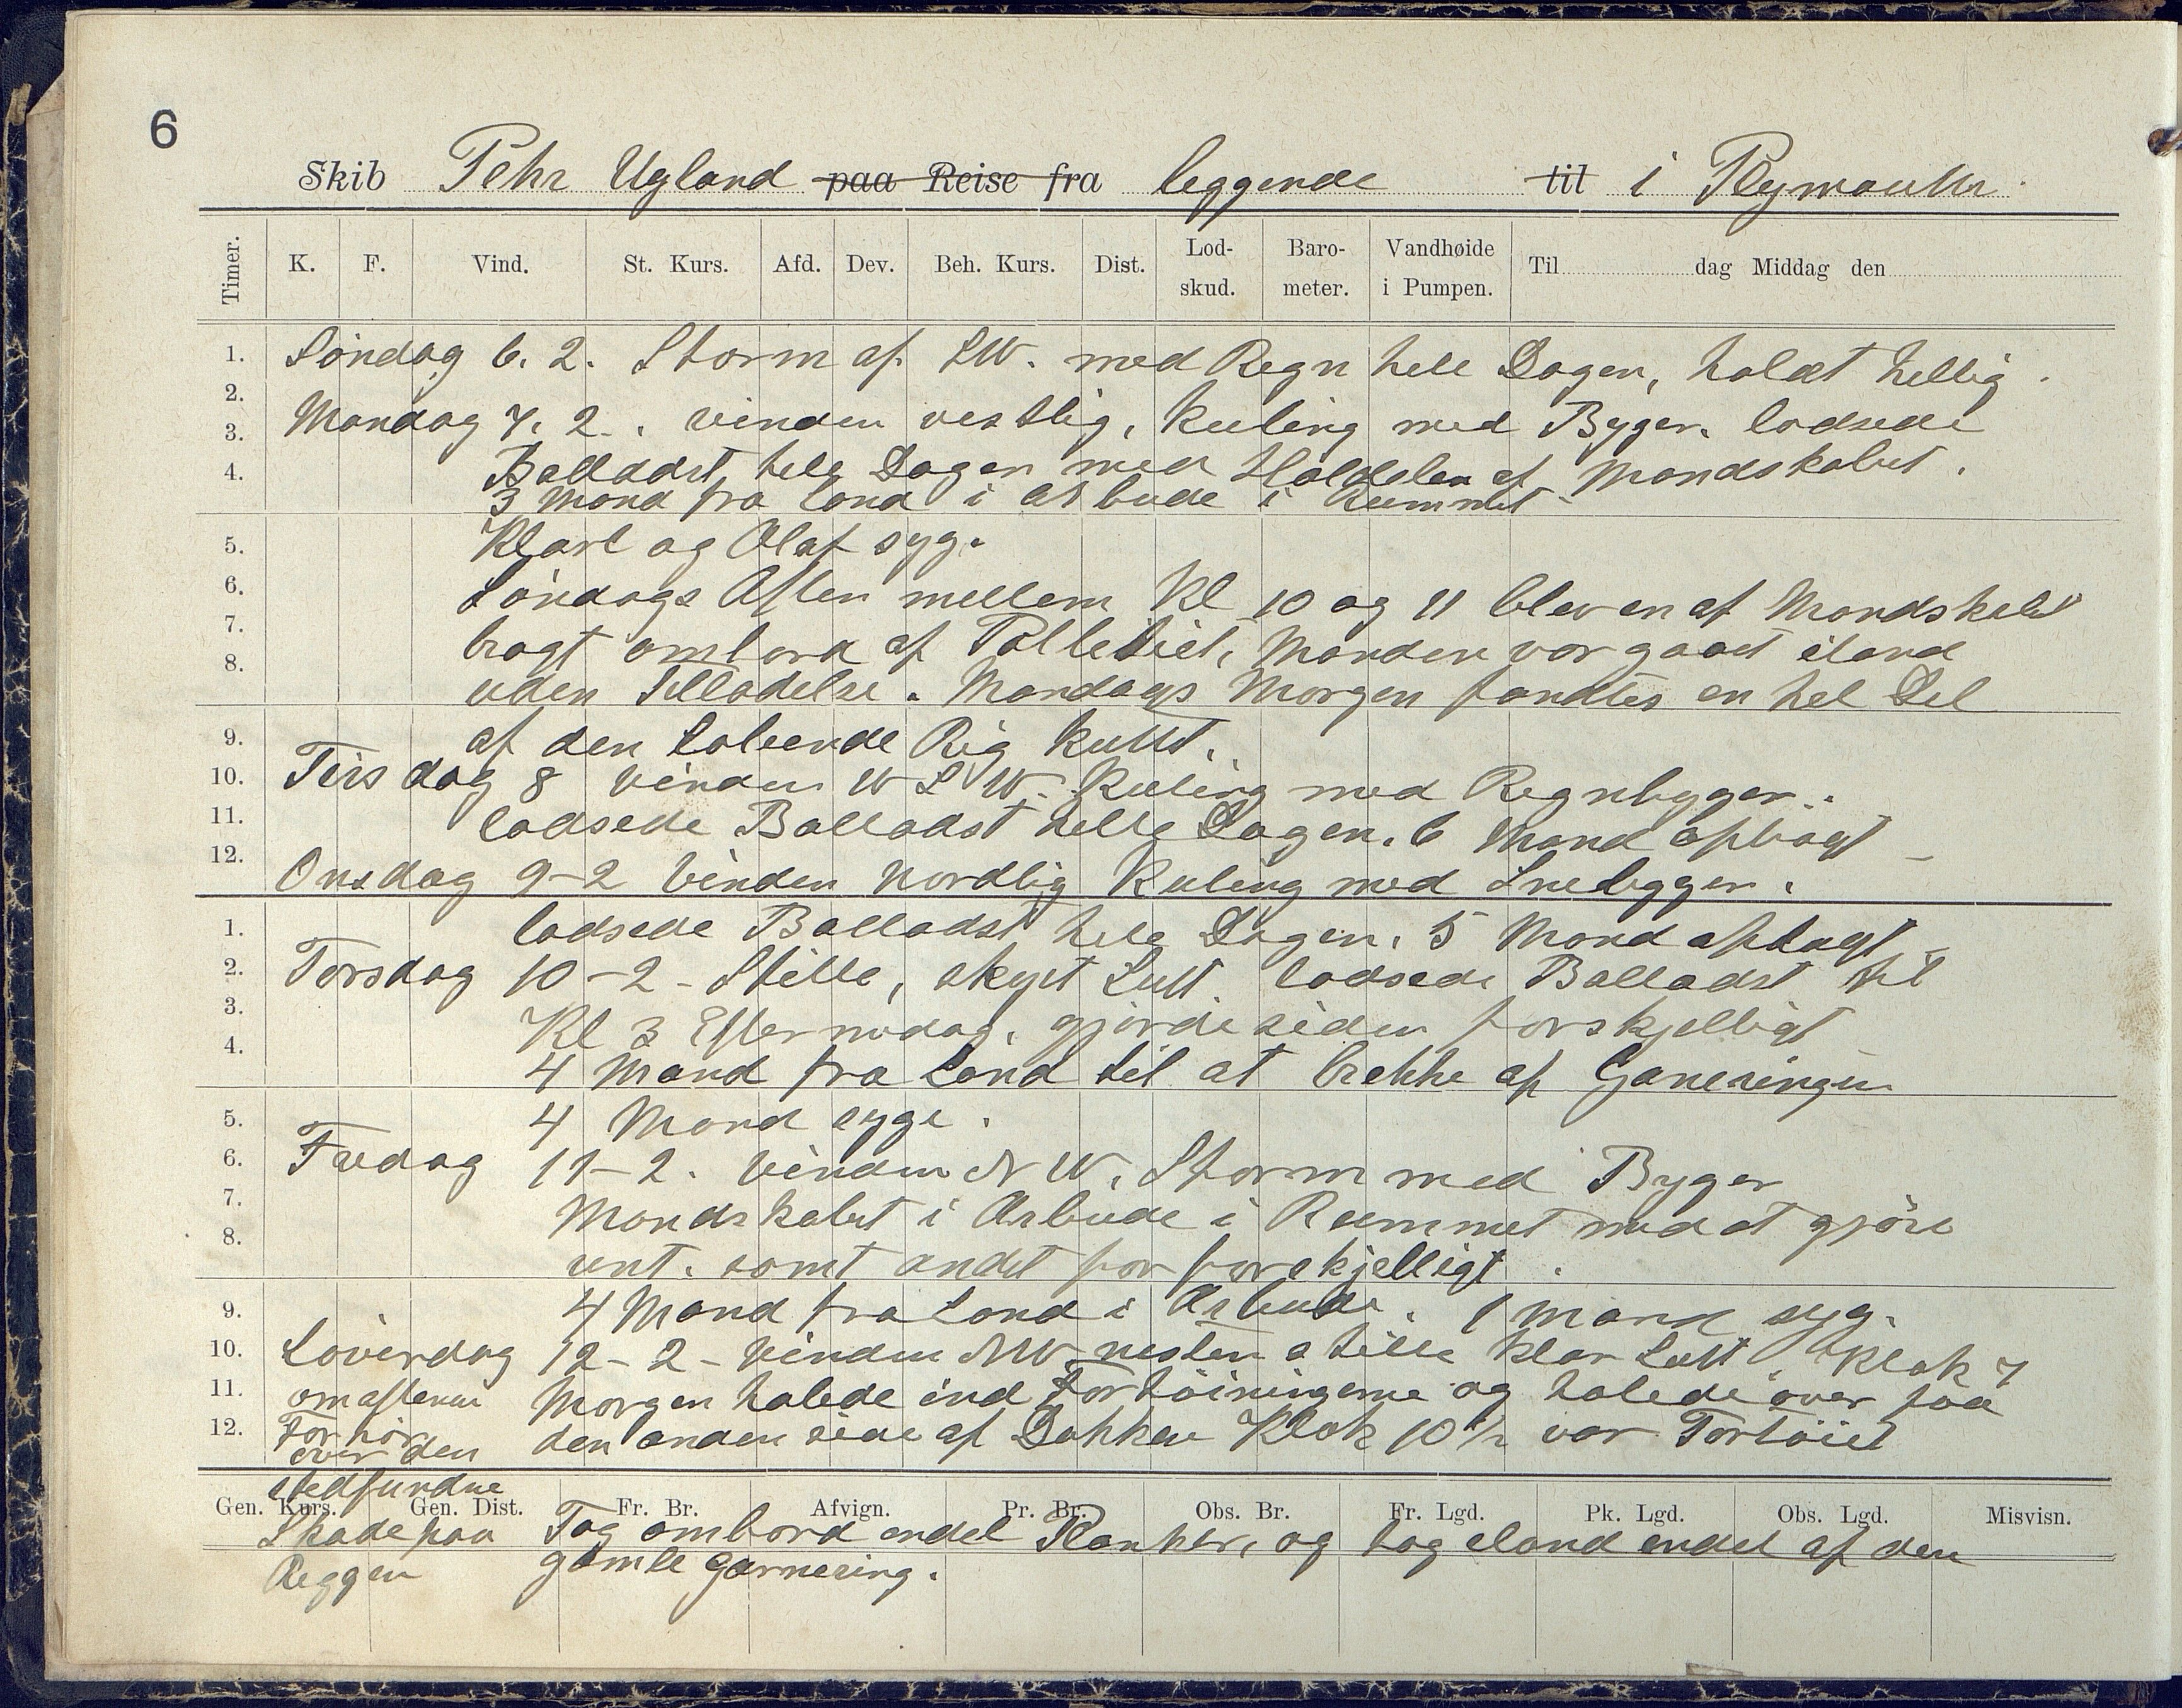 6
Skib Pehr Ugland paa Reise fra leggende til i Plymouth.
Timer. K. F. Vind. St. Kurs. Afd. Dev. Beh. Kurs. Dist. Lod-skud. Baro-meter. Vandhøide i Pumpen. Til dag Middag den
1. Söndag 6. 2. Storm af SW. med Regn hele Dagen, holdt hellig.
2.
3. Mandag 7. 2.. vinden vestlig, kuling med Byger. lodsede
4. Balladst hele Dagen med Haldelen af Mandskabet.
3 Mand fra land i Arbeide i Rummet
5. Karl og Olaf syg.
6. Söndags Aften mellem Kl 10 og 11 blev en af Mandskabet
7. bragt ombord af Pollitiet, Manden var gaaet iland
8. uden Tilladelse. Mandags Morgen fandtes en hel Del
9. af den Löbende Rig kuttet.
10. Tirsdag 8 vinden WSW. Kuling med Regnbyger..
11. lodsede Balladst hele Dagen. 6 Mand opbragt -
12. Onsdag 9-2 Vinden Nordlig Kuling med Snebygger.
1. lodsede Balladst hele Dagen. 5 Mand
2. Torsdag 10-2- Stille, skyet Luft. lodsede Balladst til
3. Kl 3 Eftermidag. gjorde siden forskjelligt
4. 4 Mand fra Land til at brekke af Garneringen
5. 4 Mand syge.
6. Fredag 11-2. Vinden NW. Storm med Byger
7. Mandskabet i Arbeide i Rummet med at gjöre
8. rent. samt andet forforskjelligt.
9. 4 Mand fra Land i Arbeide. 1 mand syg.
10. Löverdag 12-2- Vinden NW nesten stille klar Luft. Klok 7
11. omaftenen Morgen halede ind Fortöiningerne og halede over paa
12. Forhör over den den anden side af Dokken Klok 10 1/2 var Fortöiet
stedfundne
Gen. Kurs. Gen. Dist. Fr. Br. Afvign. Pr. Br. Obs. Br. Fr. Lgd. Pk. Lgd. Obs. Lgd. Misvisn.
Skade paa Tog ombord endel Planker, og tog eland endel af den
Reggen gamle Garnering.